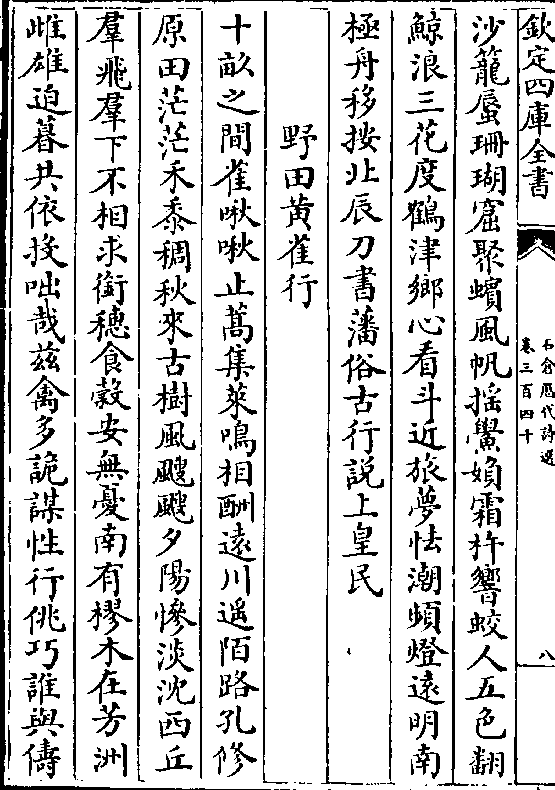 欽定四庫全書
石倉歷代詩選
卷三百四十
八
沙籠蜃珊瑚窟聚蠙風帆揺鸑媍霜杵響蛟人五色翻
鯨浪三花度鶴津鄉心看斗近旅夢怯潮頻燈遠明南
極舟移按北辰刀書藩俗古行說上皇民
野田黃雀行
十畝之間雀啾啾止蒿集萊鳴相酬遠川遥陌路孔修
原田茫茫禾黍稠秋來古樹風颼颼夕陽慘淡沈西丘
羣飛羣下不相求銜穗食穀安無憂南有樛木在芳洲
雌雄迫暮共依投咄哉兹禽多詭謀性行佻巧誰與儔